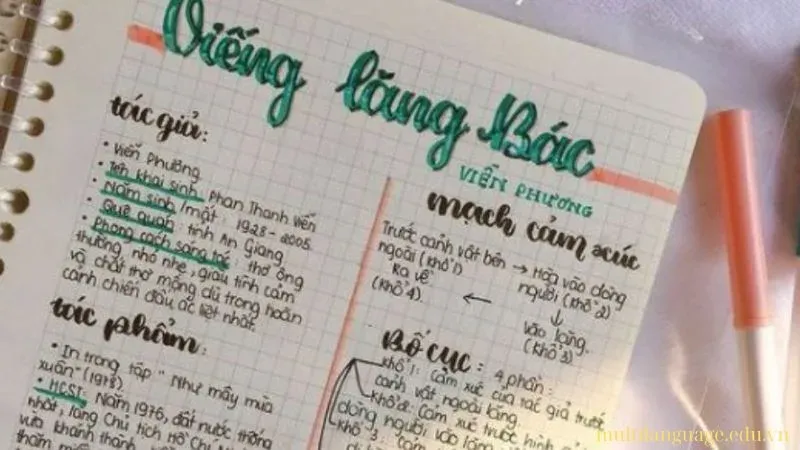 Viếng lăng Bác
VIỄN PHƯƠNG
tác giả:
• Viễn Phương
• Tên khai sinh: Phan Thanh Viễn
• Năm sinh/mất: 1928-2005
• Quê quán: tỉnh An Giang
• Phong cách sáng tác: thơ ông
thường nhỏ nhẹ, giàu tình cảm
và chất thơ mộng dù trong hoàn
cảnh chiến đấu ác liệt nhất.
tác phẩm:
• In trong tập "Như mây mùa
xuân" (1978).
• HCST: Năm 1976, đất nước thống
nhất, lăng Chủ tịch Hồ Chí
vừa khánh thành
thăm miền
mạch cảm xúc
Trước cảnh vật bên → Hòa vào dòng
ngoài (khổ 1) người (khổ 2)
Ra về ← ↓
(khổ 4). vào lăng.
(khổ 3)
Bố cục: 4 phần:
khổ 1: Cảm xúc của tác giả trước
cảnh vật ngoài lăng.
khổ 2: Cảm xúc trước hình
dòng người vào lăng
khổ 3: "Cảm
multilanguage.edu.vn